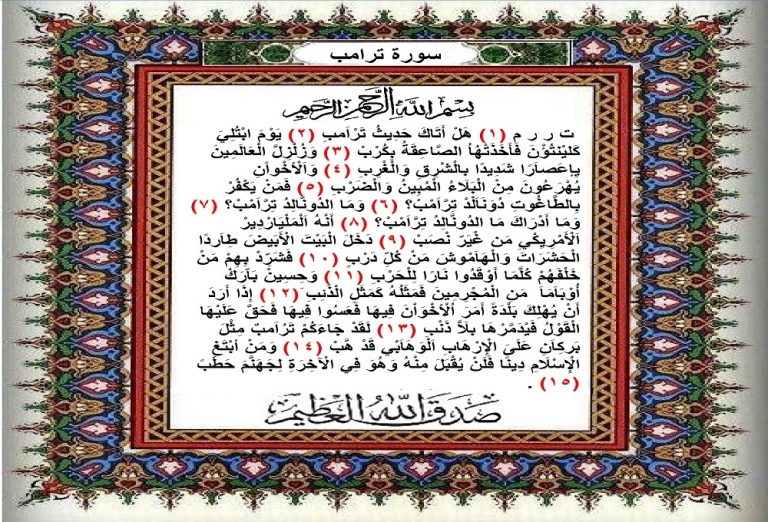 سورة ترامب
بِسْمِ اللَّهِ الرَّحْمَنِ الرَّحِيمِ
ت ر ر م (١) هَلْ أَتَاكَ حَدِيثُ تَرَامبِ (٢) يَوْمَ ابْتُلِيَ
كَلِينْتُوْنَ فَأَخَذَتْهُا الصَّاعِقَةُ بِكُرْبٌ (٣) وَزُلْزِلَ الْعَالَمِينَ
بِإِعصَارًا شَدِيدًا بِالْشَرْقِ وَالْغَربِ (٤) وَالْأَخْوانِ
يُهْرَعُونَ مِنْ الْبَلَاءُ الْمُبِينُ وَالْضَرْبِ (٥) فَمَنْ يَكْفُرْ
بِالطَّاغُوتِ دُونَالْدُ تِرَامْبُ؟ (٦) وَمَا الدُونَالدُ تِرَامْبُ؟ (٧)
وَمَا أَدْرَاكَ مَا الدُونَالدُ تِرَامْبُ؟ (٨) أَنَّهُ الْمَلْيَارْدِيرُ
الْأَمْرِيكِي مَن غَيْرَ نَصْبُ (٩) دَخَلَ الْبَيْتَ الْأَبْيَضَ طَارِدًا
الْحَشَرَاتُ وَالْهَامُوشَ مَنْ كُلِّ دَرْبٍ (١٠) فَشَرِّدْ بِهِم مَنْ
خَلْفَهُمْ كُلَّمَا أَوْقَدُوا نَارًا لِلْحَرْبِ (١١) وَحِسِينَ بَارَكَ
أُوْبَامَا مِنَ الْمُجْرِمِينَ فَمَثَلُهُ كَمَثَلِ الْذَنْبِ (١٢) إِذَا أَرَدَ
أَنْ يُهْلِكَ بَلْدَةً أَمَرَ الْأَخْوَانَ فِيهَا فَعَسُوا فِيهَا فَحَقَّ عَلَيْهَا
الْقَوْلُ فَيُدَمِّرْهَا بِلاَ ذَنْبُ (١٣) لَقَدْ جَاءَكُمْ تَرَامْبُ مِثْلَ
بَرْكَانٍ عَلَى الْإِرْهَابِ الْوَهَابِي قَدْ هَبَّ (١٤) وَمَنْ ابْتَغِ
الْإِسْلَامِ دِينًا فَلَنْ يُقْبَلَ مِنْهُ وَهُوَ فِي الْآخِرَةِ لِجَهَنَّمَ حَطَبْ
(١٥) .
صَدَقَ اللهُ العَظِيم